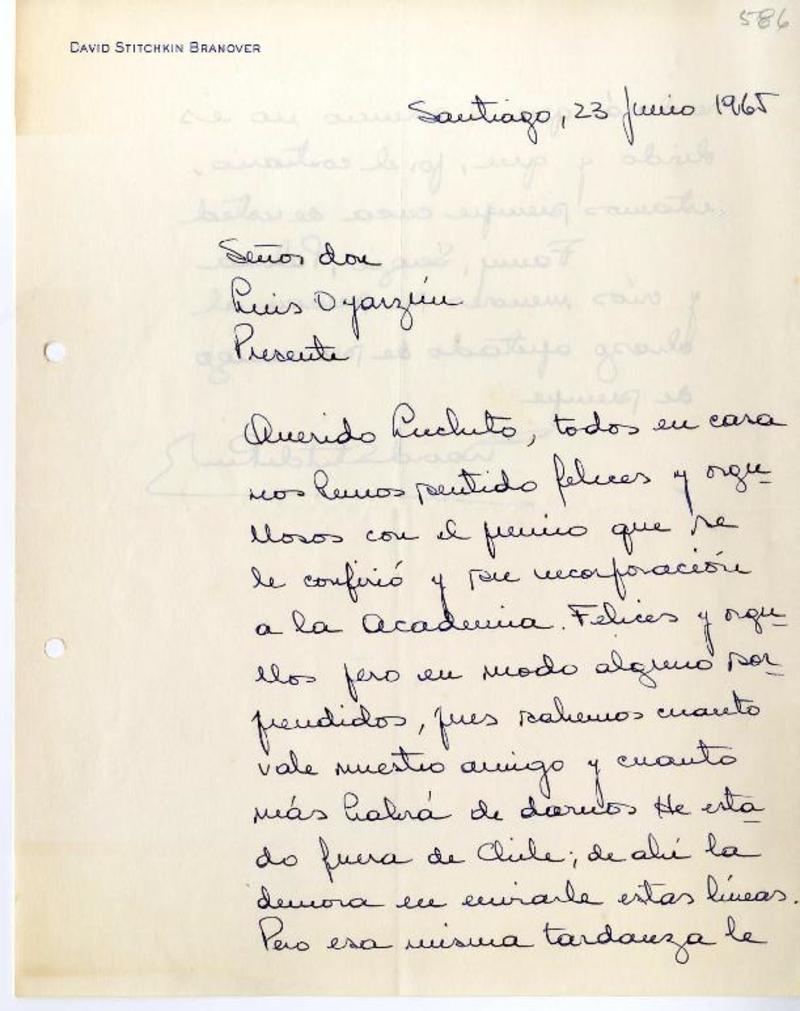 586
DAVID STITCHKIN BRANOVER
Santiago, 23 Junio 1965
Señor don
Luis Oyarzún
Presente
Querido Luchito, todos en casa
nos hemos sentido felices y orgu-
llosos con el premio que se
le confirió y su incorporación
a la Academia. Felices y orgu-
llos pero en modo alguno sor-
prendidos, pues sabemos cuanto
vale nuestro amigo y cuanto
más habrá de darnos He esta-
do fuera de Chile; de ahí la
demora en enviarle estas líneas.
Pero esa misma tardanza le